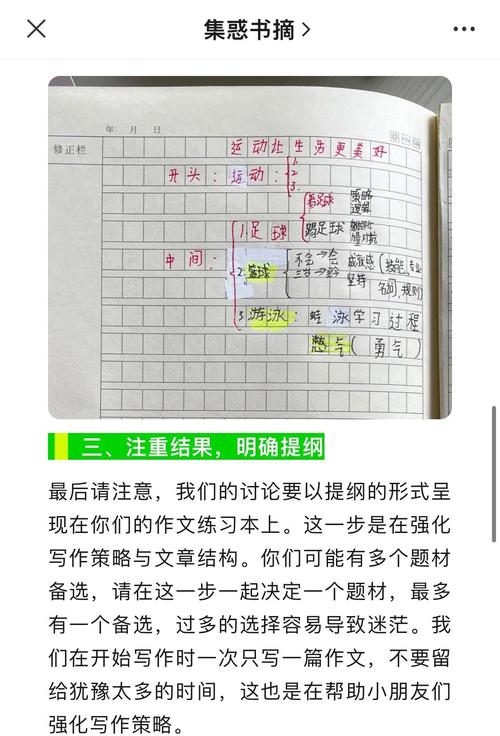 集惑书摘
年 月 日
修正栏
运动让生活更美好
开头：运动：1.
2
3.
看足球 策略
逻辑
中间：1.足球 踢足球
2.篮球 不会→会 成就感（技能，专业
三步→ 坚持 名词，规则）
3 游泳：蛙泳学习过程
憋气（勇气）
三、注重结果，明确提纲
最后请注意，我们的讨论要以提纲的形式呈
现在你们的作文练习本上。这一步是在强化
写作策略与文章结构。你们可能有多个题材
备选，请在这一步一起决定一个题材，最多
有一个备选，过多的选择容易导致迷茫。我
们在开始写作时一次只写一篇作文，不要留
给犹豫太多的时间，这也是在帮助小朋友们
强化写作策略。